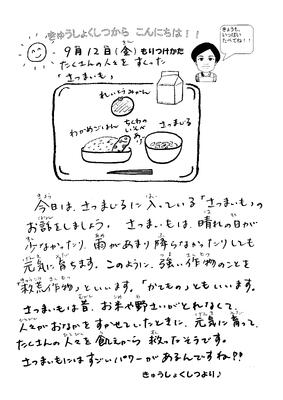 きゅうしょくしつから こんにちは！！
きょうも、
いっぱい
たべてね！！
9月12日(金) もりつけかた
たくさんの人々を すくった
「さつまいも」
れいとうみかん
わかめごはん
ちくわの
いそべ
あげ
さつまじる
今日は、さつまじるに入っている「さつまいも」の
お話をしましょう。 さつまいもは、晴れの日が
少なかったり、雨があまり降らなかったりしても
元気に育ちます。このように、強い作物のことを
「救荒作物」といいます。「かてもの」ともいいます。
さつまいもは昔、お米や野さいがとれなくて、
人々がおなかをすかせていたときに、元気に育って、
たくさんの人々を飢えから 救ったそうです。
さつまいもにはすごいパワーがあるんですね??
きゅうしょくしつより♪